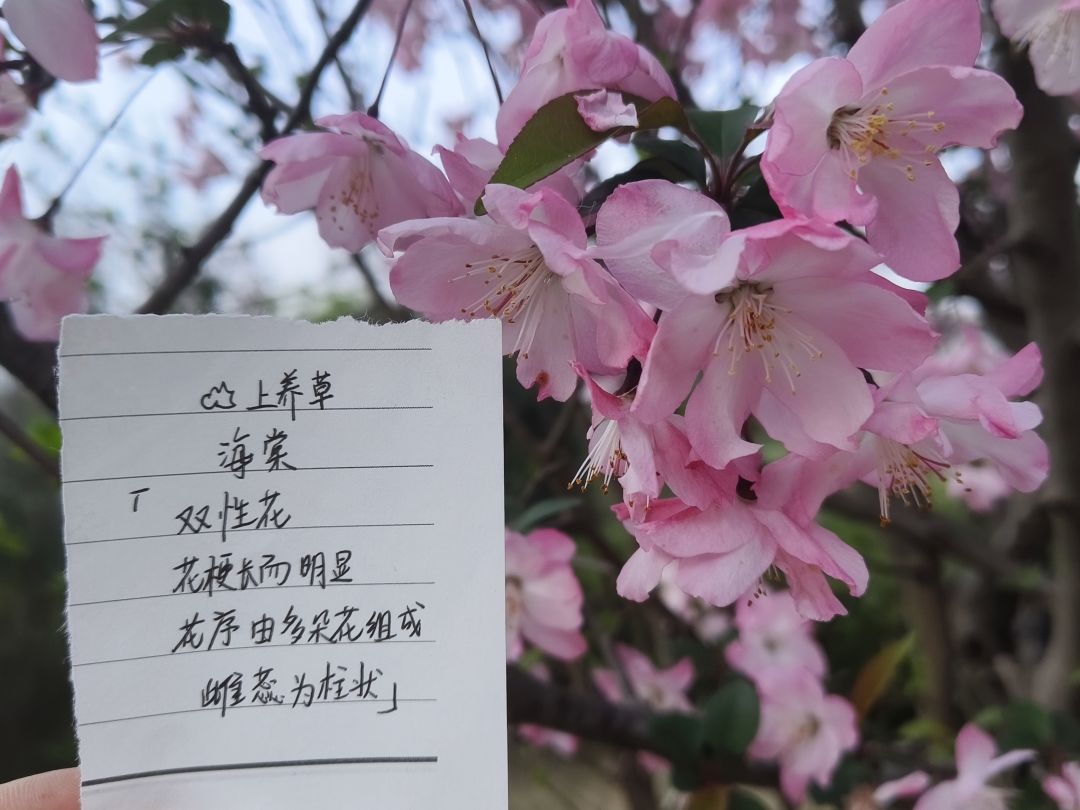 上养草
海棠
「双性花
花梗长而明显
花序由多朵花组成
雌蕊为柱状」